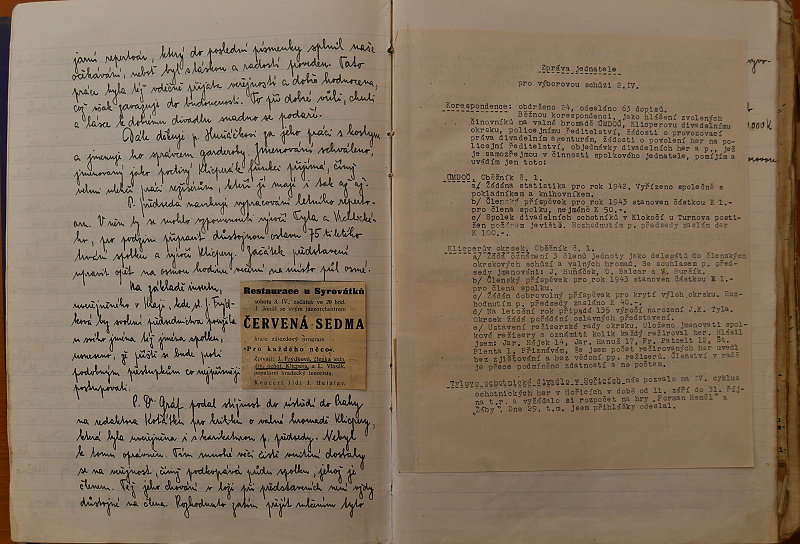 jarní repertoár, který do poslední písmenky splnil naše
očekávání, neboť byl s láskou a radostí proveden. Tato
práce byla též vděčně přijata veřejností a dobře hodnocena,
což však zavazuje do budoucnosti. To při dobré vůli, chuti
a lásce k dobrému divadlu snadno se podaří.
Dále děkuje p. Huňáčkovi za jeho práci s kostymy
a jmenuje ho správcem garderoby. Jmenování schváleno,
jmenovaný jako poctivý Klicperák funkci přijímá, čímž
velmi ulehčí práci režisérům, kteří jí mají i tak až až.
P. předseda navrhuje vypracování letního repertoáru.
V něm by se mohlo vzpomenouti výročí Tyla a
ho, pro podzim připravit důstojnou oslavu 75tiletého
trvání spolku a výročí Klicpery. Začátek představení
upravit opět na osmou hodinu večerní na místo půl osmé.
Na základě insertu,
uveřejněného v Kraji, kde sl. J. Frýdková
by svolení předsednictva použila
u svého jména též jména spolku,
usneseno, že příště se bude proti
podobným přestupkům co nejpřísněji
postupovati.
P. Dr Gráf podal stížnost do ústředí do Prahy
na redaktora pro kritiku o valné hromadě Klicpery,
která byla uveřejněna i s karikaturou p. předsedy. Nebyl
k tomu oprávněn. Tím mnohé věci čistě vnitřní dostaly
se na veřejnost, čímž podkopává půdu spolku, jehož je
členem. Též jeho chování v loži při představeních není vždy
důstojné na člena. Rozhodnuto zatím přejít mlčením tyto
Restaurace u Syrovátků
sobota 3. IV. začátek ve 20 hod.
J. Jonáš se svým jazzorchestrem
ČERVENÁ SEDMA
hraje zájezdový program
»Pro každého něco«.
Zpívají: J. Frýdková, členka jedn.
div. ochot. Klicpera, a L. Vlasík,
populární hradecký tenorista.
Koncert řídí J. Hejzlar.
Zpráva jednatele
pro výborovou schůzi 2.IV.
Korespondence: obdrženo 24, odesláno 63 dopisů.
Běžnou korespondenci, jako hlášení zvolených
činovníků na valné hromadě ÚMDOČ, Klicperovu divadelnímu
okrsku, policejnímu ředitelství, žádosti o provozovací
práva divadelním agenturám, žádosti o povolení her na policejní
ředitelství, objednávky divadelních her a p., jež
je samozřejmou v činnosti spolkového jednatele, pomíjím a
uvádím jen toto:
ÚMDOČ. Oběžník č. 1.
a/ Žádána statistika pro rok 1942. Vyřízeno společně s
pokladníkem a knihovníkem.
b/ Členský příspěvek pro rok 1943 stanoven částkou K 1.-
pro člena spolku, nejméně K 50.-.
c/ Spolek divadelních ochotníků v Klokočí u Turnova postižen
požárem jeviště. Rozhodnutím p. předsedy zaslán dar
K 100.-.
Klicperův okrsek. Oběžník č. 1.
a/ Žádá oznámení 3 členů jednoty jako delegátů do členských
okrskových schůzí a valných hromad. Se souhlasem p. předsedy
jmenováni: J. Huňáček, O. Balcar a M. Buršík.
b/ Členský příspěvek pro rok 1943 stanoven částkou K 1.-
pro člena spolku.
c/ Žádán dobrovolný příspěvek pro krytí výloh okrsku. Rozhodnutím
p. předsedy zasláno K 40.-.
d/ Na letošní rok připadá 135 výročí narození J.K. Tyla.
Okrsek žádá pořádání oslavných představení.
e/ Ustavení režisérské rady okrsku. Uloženo jmenovati spolkové
režisery a oznámiti kolik každý režiroval her. Hlásil
jsem: Jar. Hájek 14, Jar. Hanuš 17, Fr. Patzelt 12, St.
Plenta 1. Přiznávám, že jsem počet režírovaných her uvedl
bez zjišťování a bez vědomí pp. režiserů. Členství v radě
je přece podmíněno zdatností a ne počtem.
Tylovo ochotnické divadlo v Hořicích nás pozvalo na IV. cyklus
ochotnických her v Hořicích v době od 11. září do 31. října
t.r. a vyžádalo si rozpočet na hry „Forman Henčl" a
„Žáby". Dne 29. t.m. jsem přihlášky odeslal.